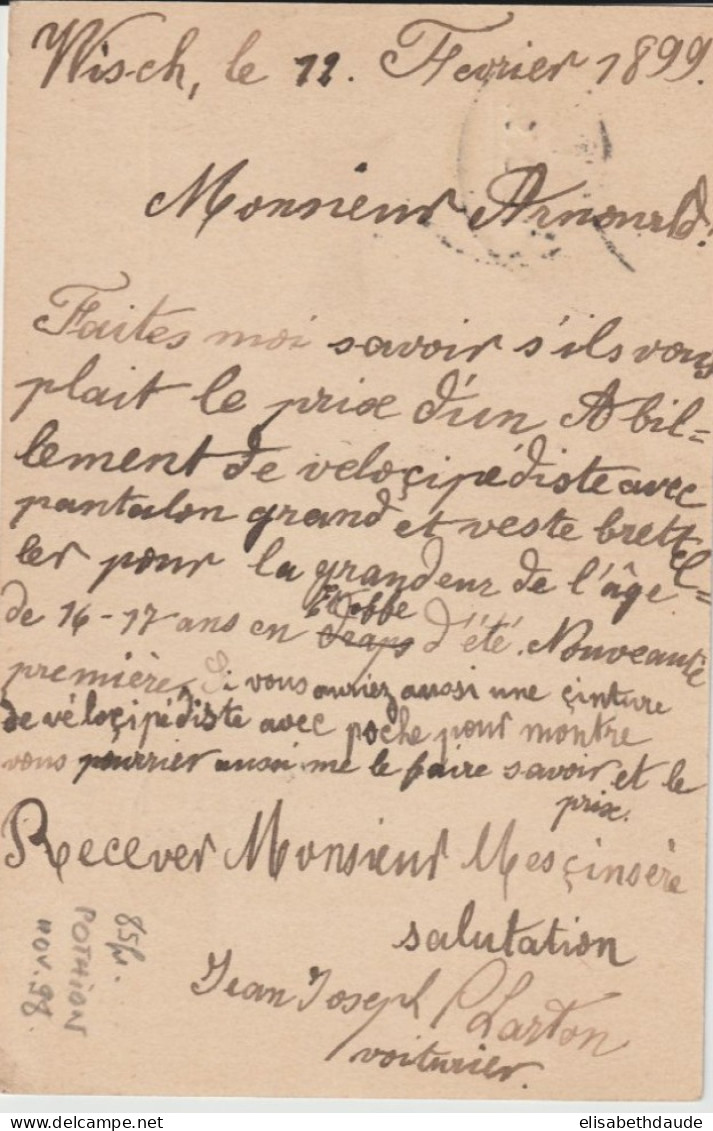 Wisch, le 11. Fevrier 1899.
Monsieur Arnould.
Faites moi savoir s'ils vous
plait le prix d'un Abil=
lement de veloçipédiste avec
pantalon grand et veste brettel=
ler pour la grandeur de l'âge
de 16-17 ans en draps d'été. Nouveauté
première, Si vous auriez aussi une çinture
de véloçipédiste avec poche pour montre
vous pourrier aussi me le faire savoir et le
prix.
Recever Monsieur Mesçinsère
salutation
Jean Joseph Charton
voiturier.
85fr.
POTHION
NOV. 98
elisabethdaude